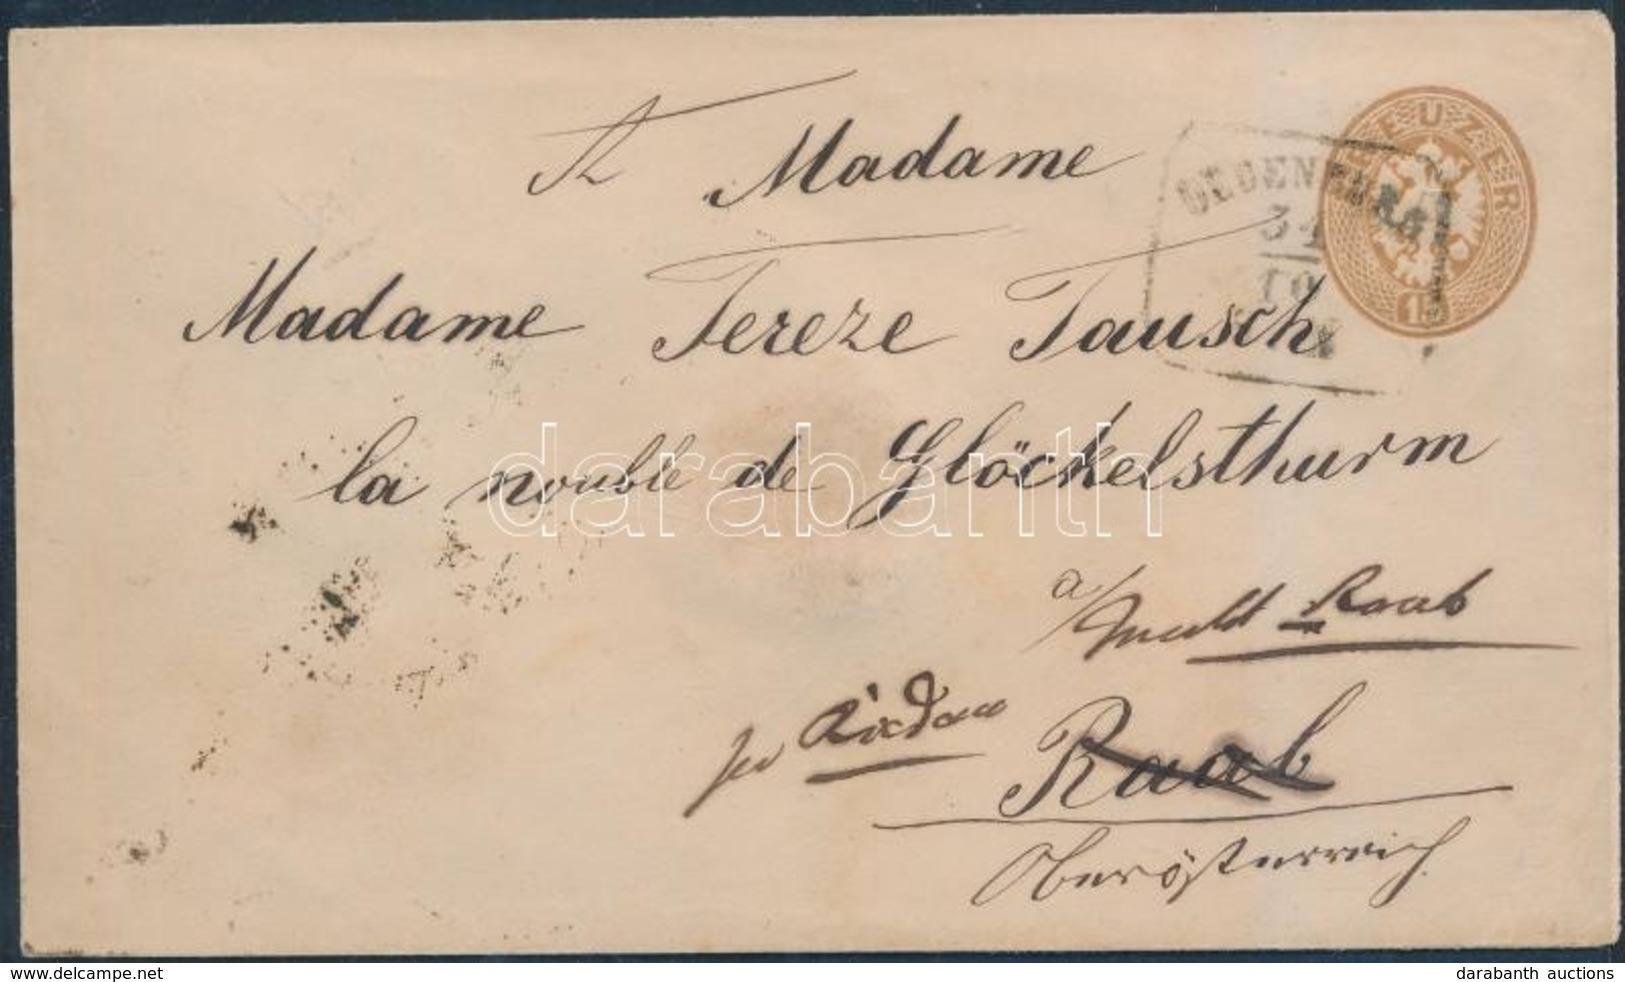 A Madame
Madame Tereze Tausch
la nouble de Glöckelsthurm
a/
Markt Raab
per Riedau
Raab
Oberösterreich
OEDENBURG
31
10
KREUZER
15
darabanth
delcampe.net
darabanth auctions